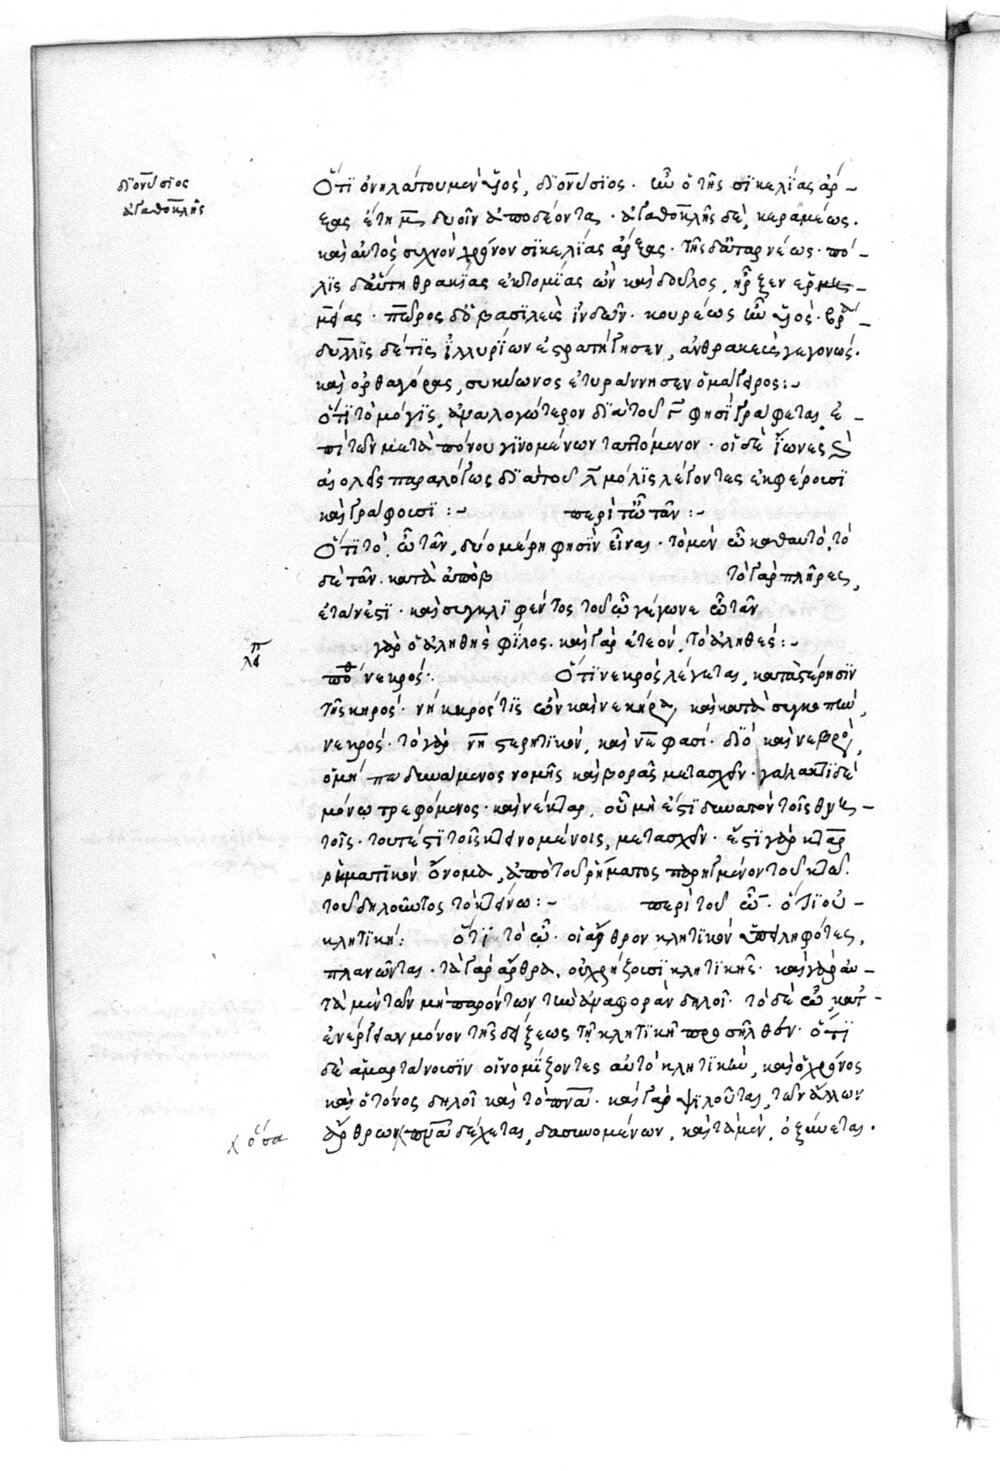 διονύσιος
ἀγαθοκλῆς
Ὅτι ὀνηλάτου μὲν υἱὸς, διονύσιος. ὧν ὁ τῆς σικελίας ἄρ-
ξας ἔτη μ δυοῖν ἀποδέοντα. ἀγαθοκλῆς δὲ, κεραμέως.
καὶ αὐτὸς συχνὸν χρόνον σικελίας ἄρξας. τῆς δὲ ταρνέως. πό-
λις δ' αὕτη θρακίας ἐκτομίας ὢν καὶ δοῦλος, ἦρξεν ἑρμ
πῶρος δ' ὁ βασιλεὺς ἰνδῶν. κουρέως ὢν υἱὸς. βρα-
δυλλις δέ τις ἰλλυρίων ἐστρατήγησεν, ἀνθρακεὺς γεγονώς.
καὶ ὀρθαγόρας, σικυῶνος ἐτυράννησεν ὁ μάγειρος:-
Ὅτι τὸ μόγις, ἀναλογώτερον διὰ τοῦ γ φησὶ γράφεται, ἐ-
πὶ τῶν μετὰ πόνου γινομένων ταττόμενον. οἱ δὲ ἴωνες καὶ
αἰολεῖς παραλόγως διὰ τοῦ λ μόλις λέγοντες ἐκφέρουσι
καὶ γράφουσι:- περὶ τοῦ ὦ τᾶν:-
Ὅτι τὸ, ὦ τᾶν, δύο μέρη φησὶν εἶναι. τὸ μὲν ὦ καθ' αυτὸ, τὸ
δὲ τᾶν. κατὰ ἀποβ τὸ γὰρ πλῆρες,
ἐτάν ἐστι. καὶ συγκλιφέντος τοῦ ὦ γέγονε ὦ τᾶν
γὰρ ὁ ἀληθὴς φίλος. καὶ γὰρ ἐτεὸν, τὸ ἀληθές:-
πόθεν νεκρός: Ὅτι νεκρὸς λέγεται, κατὰ στέρησιν
τῆς κηρός. νήκηρός τις ὢν καὶ νεκηρ καὶ κατὰ συγκοπὴν,
νεκρός. τὸ γὰρ νη στερητικὸν, καὶ νε φασί. διὸ καὶ νεβρὸς,
ὁ μή πω δυνάμενος νομῆς καὶ βορᾶς μετασχεῖν. γάλακτι δὲ
μόνῳ τρεφόμενος. καὶ νέκταρ, οὗ μὴ ἐστὶ δυνατὸν τοῖς θνη-
τοῖς. τουτέστι τοῖς κτεινομένοις, μετασχεῖν. ἔστι γὰρ κταρ
ρηματικὸν ὄνομα, ἀπὸ τοῦ ρήματος παρηγμένον τοῦ κτῶ.
τοῦ δηλοῦντος τὸ κτείνω:- περὶ τοῦ ὦ. ὅτι οὐ
κλητική: Ὅτι τὸ ὦ. οἱ ἄρθρον κλητικὸν ὑπειληφότες,
πλανῶνται. τὰ γὰρ ἄρθρα, οὐ χρήζουσι κλητικῆς. καὶ γὰρ αὐ-
τὰ μὲν τῶν μὴ παρόντων τὴν ἀναφορὰν δηλοῖ. τὸ δὲ ὦ κατ'
ἐνέργειαν μόνον τῆς δείξεως τῇ κλητικῇ προσῆλθεν. ὅτι
δὲ ἁμαρτάνουσιν οἱ νομίζοντες αὐτὸ κλητικὸν, καὶ ὁ χρόνος
καὶ ὁ τόνος δηλοῖ καὶ τὸ πνεῦμα. καὶ γὰρ ψιλοῦται, τῶν ἄλλων
ὅσα
ἄρθρων πνεῦμα δέχεται, δασυνομένων, καὶ τὰ μὲν, ὀξύνεται.